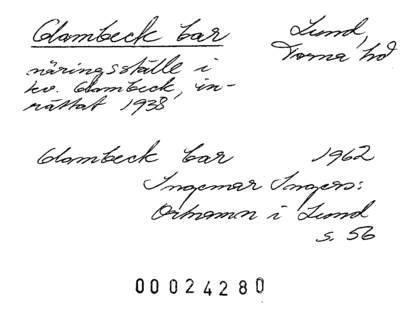 Glambeck bar
Lund,
Torna hd
näringsställe i
kv. Glambeck, in-
rättat 1938
Glambeck bar 1962
Ingemar Ingers:
Ortnamn i Lund
s. 56
00024280